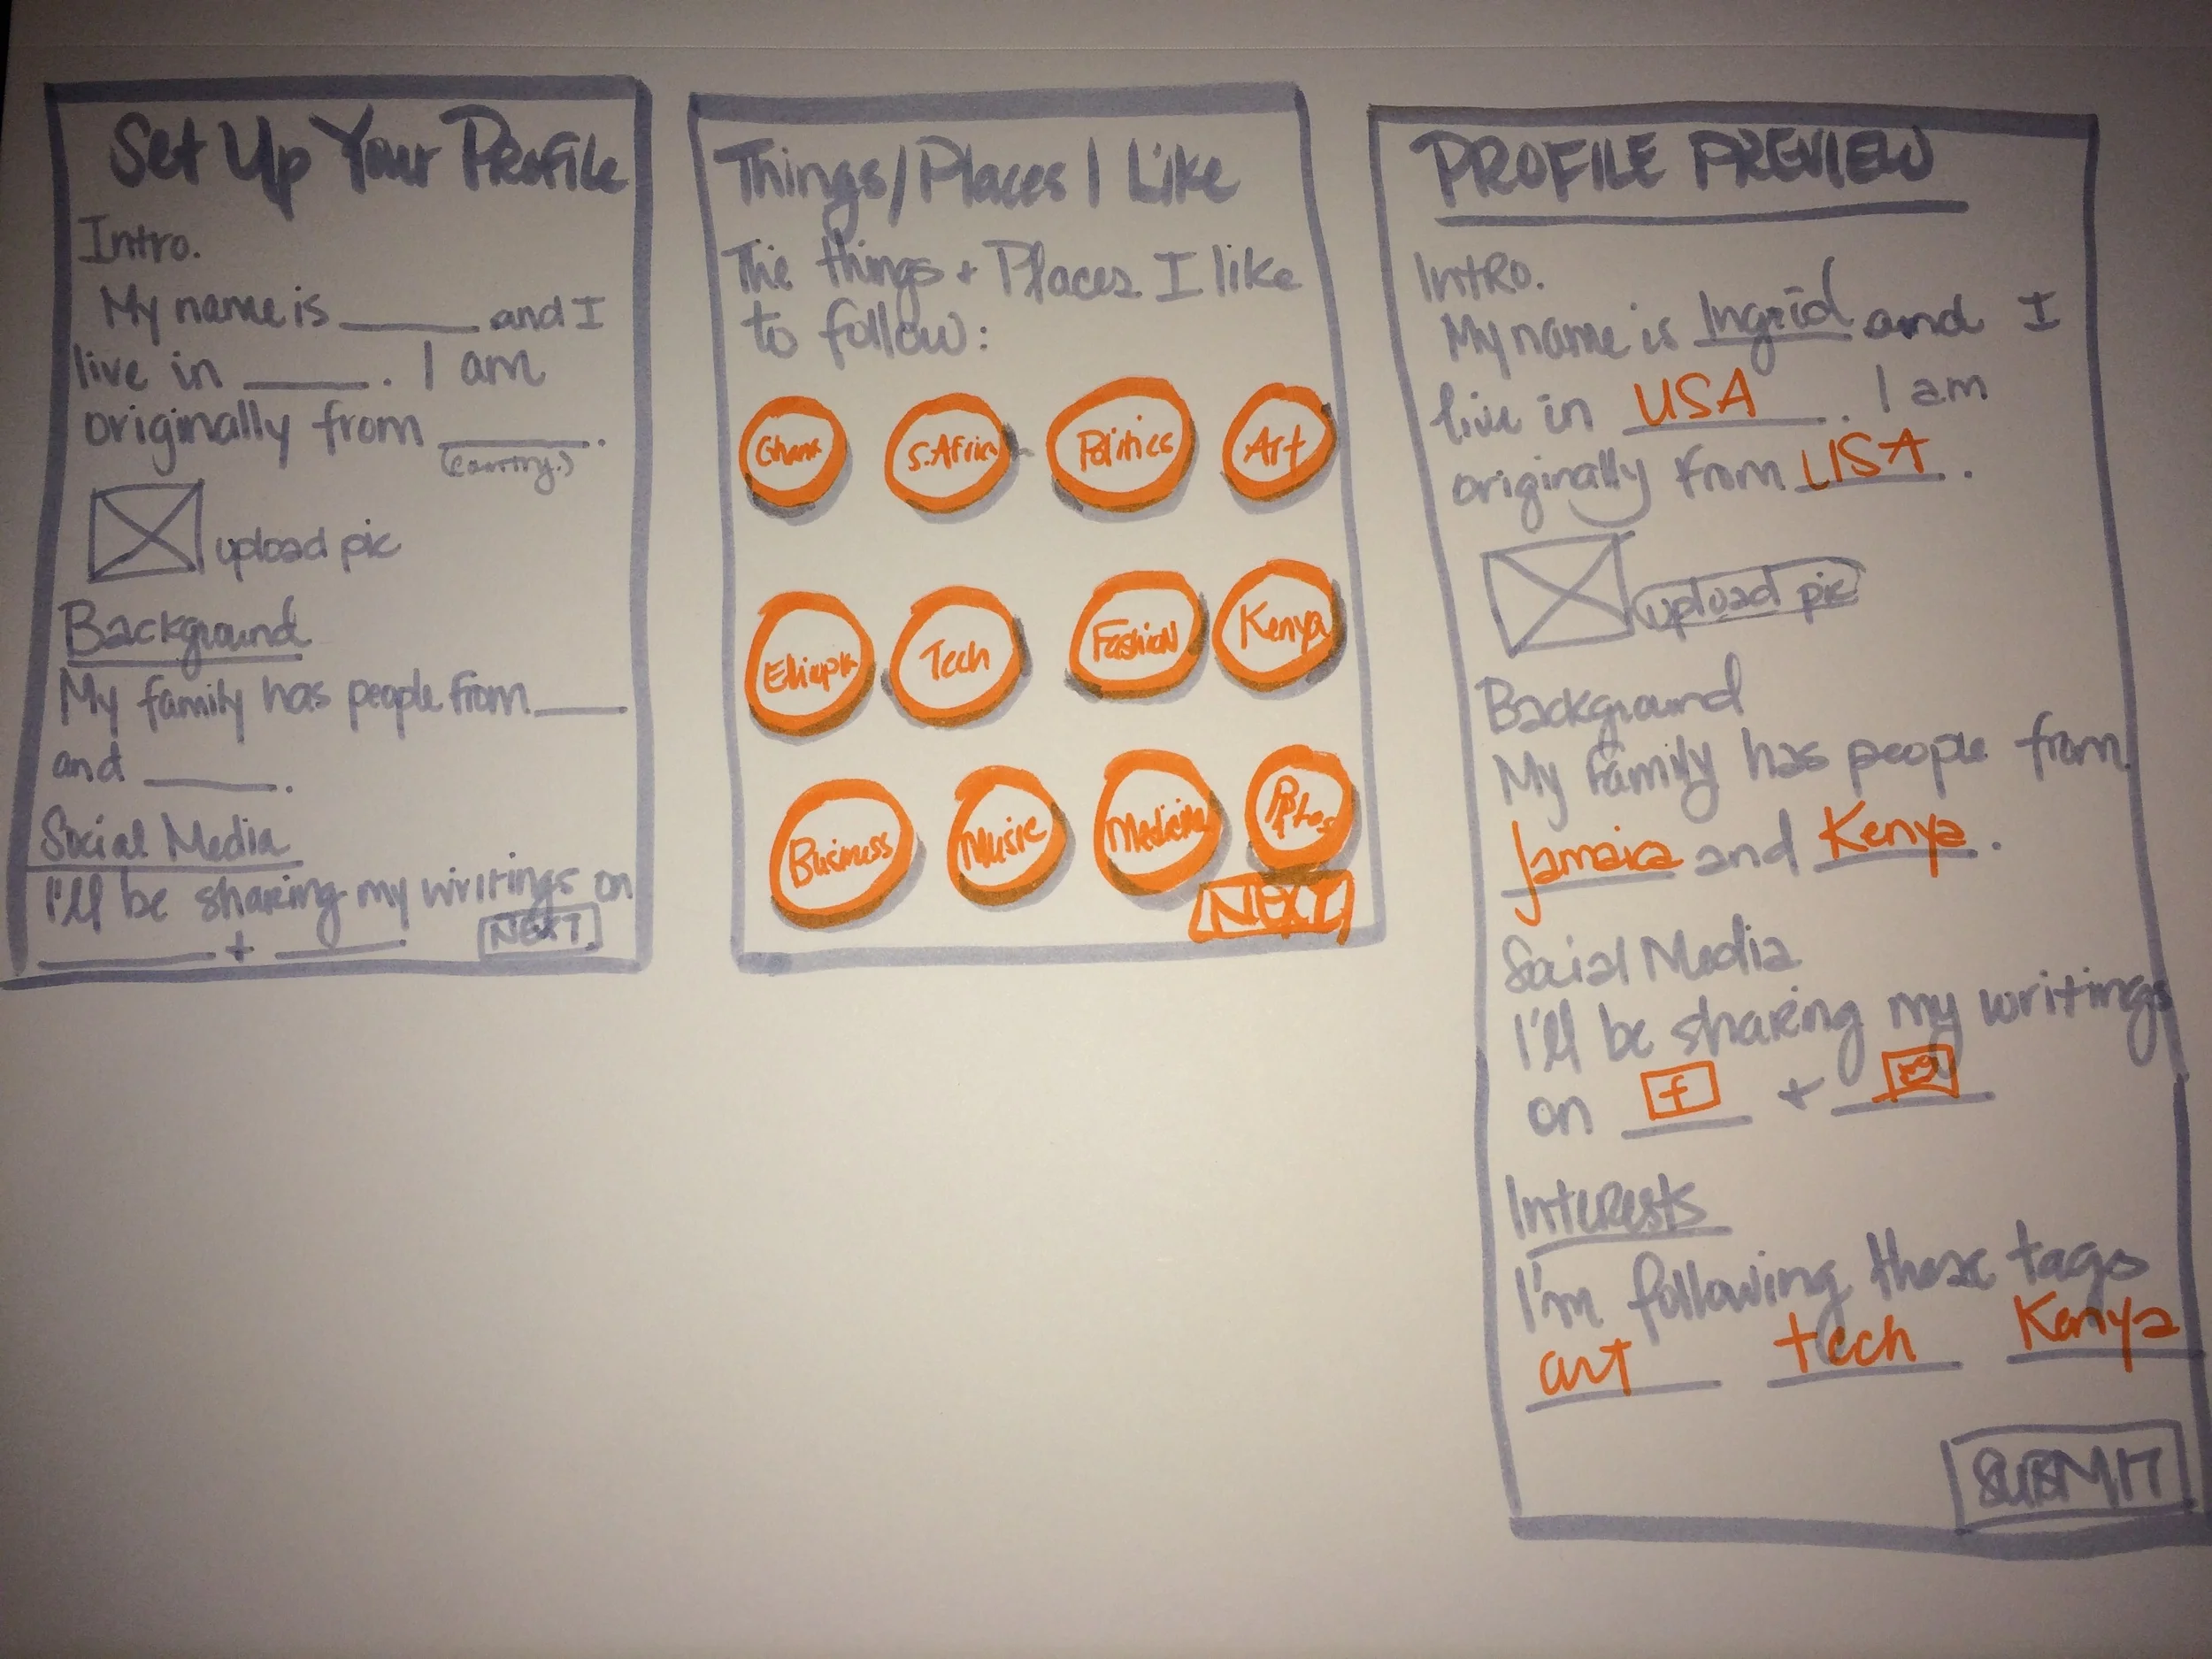 Set Up Your Profile
Intro.
My name is ______ and I
live in ______. I am
originally from ______.
(country.)
upload pic
Background
My family has people from ____
and ______.
Social Media
I'll be sharing my writings on
______ + ______
NEXT
Things/Places I Like
The things + Places I like
to follow:
Ghana S.Africa Politics Art
Tech Fashion Kenya
Business Music Medicine
NEXT
PROFILE PREVIEW
Intro.
My name is Ingrid and I
live in USA. I am
originally from USA.
upload pic
Background
My family has people from
Jamaica and Kenya.
Social Media
I'll be sharing my writings
on f +
Interests
I'm following these tags
art tech Kenya
SUBMIT